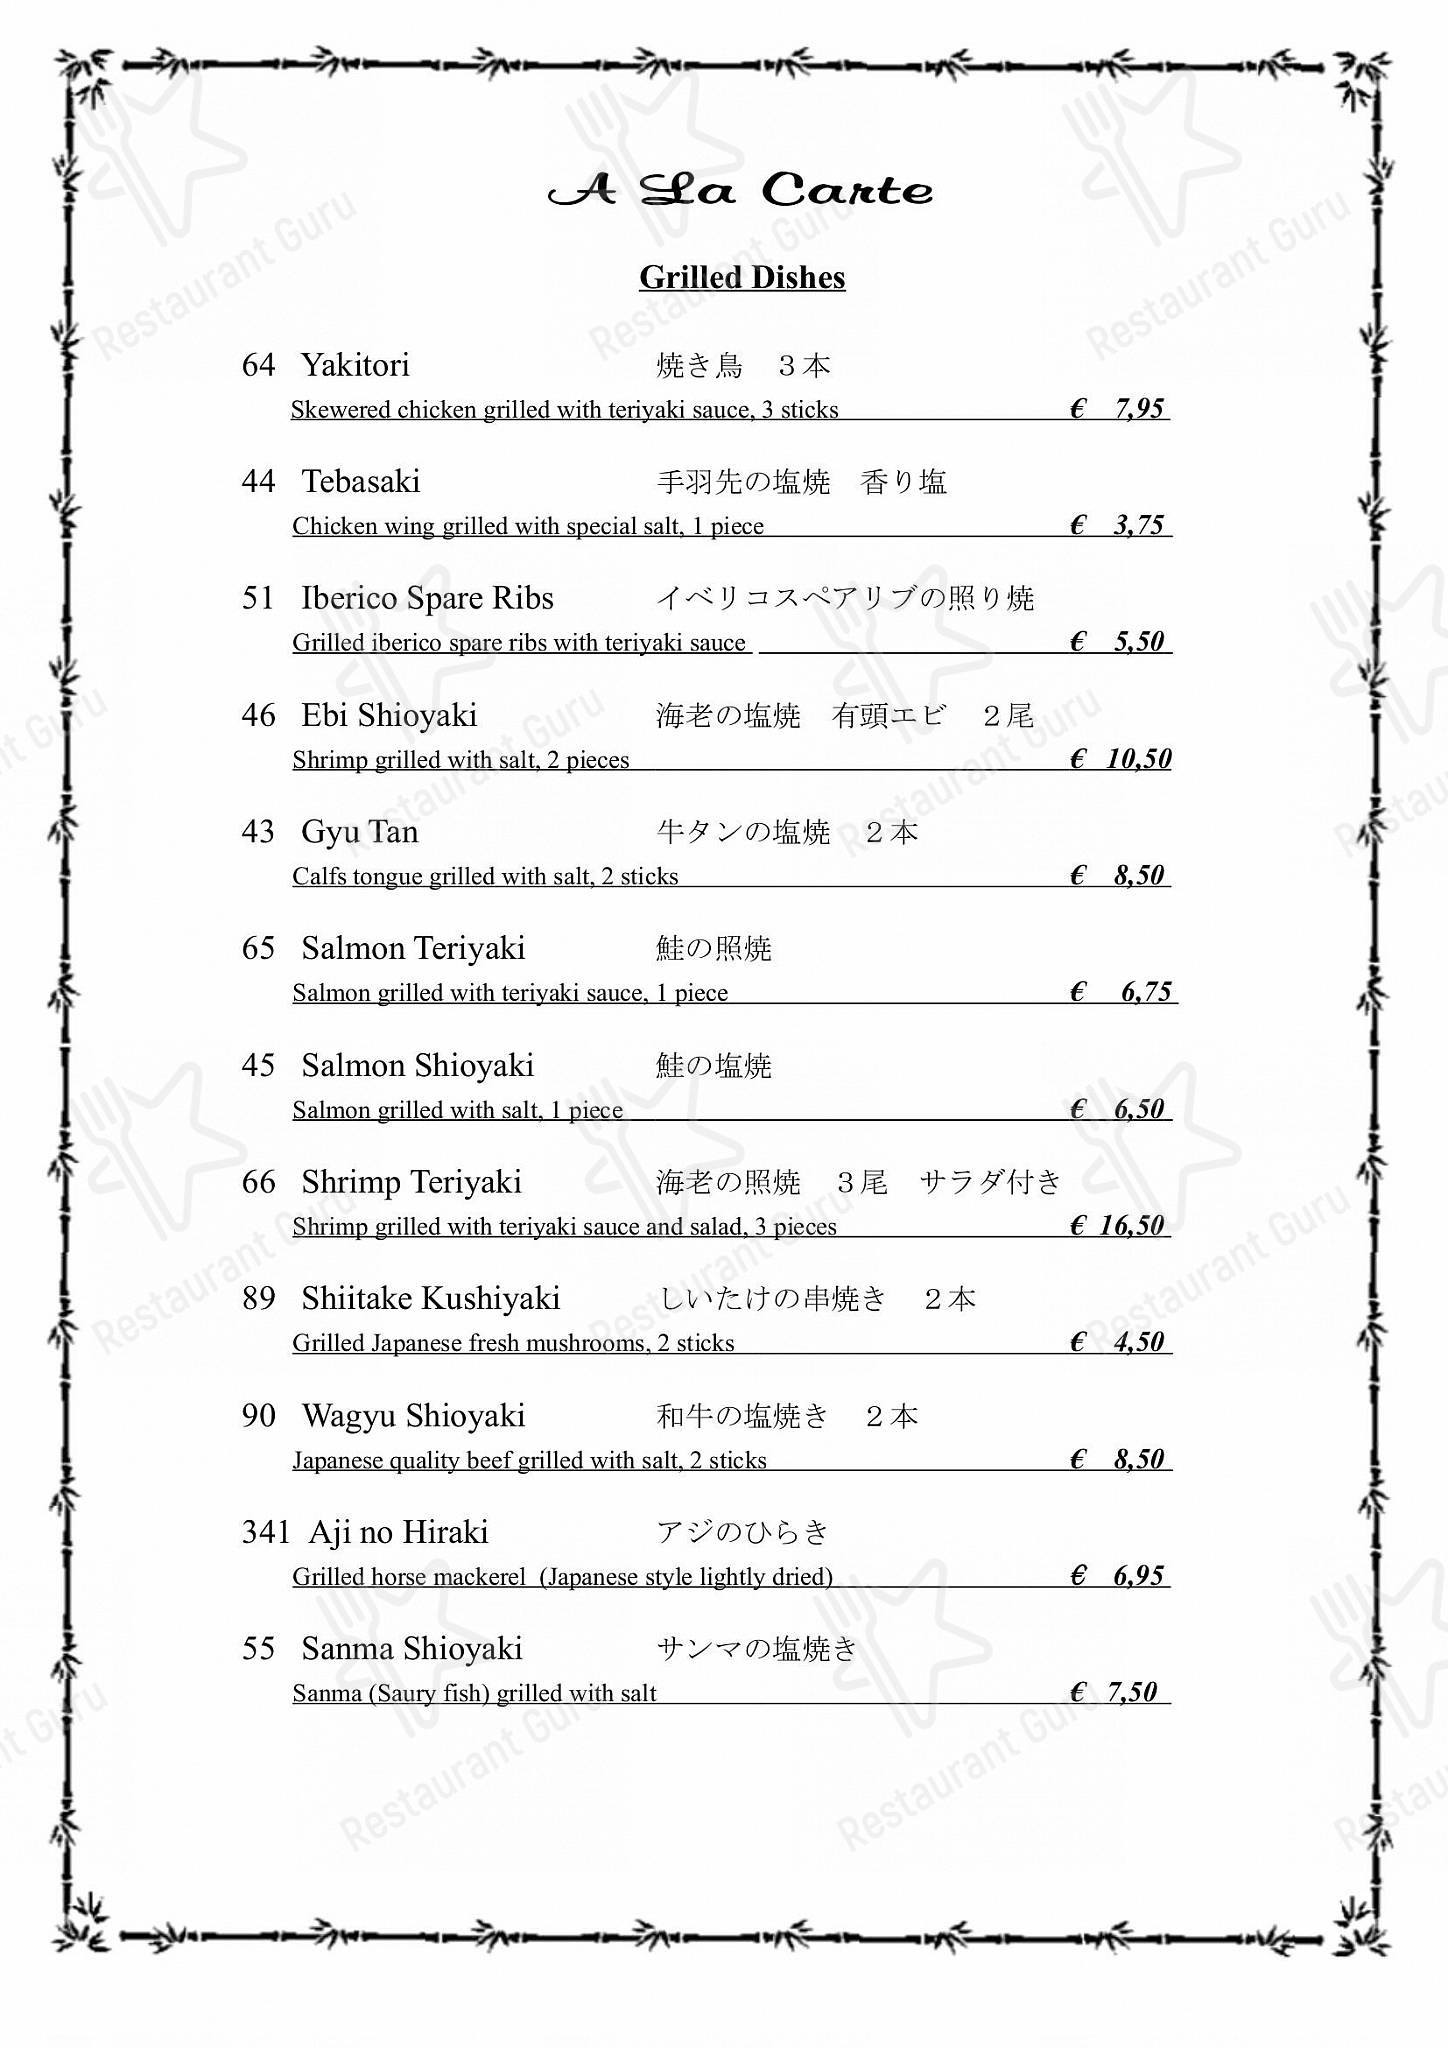 A La Carte
Grilled Dishes
64 Yakitori 焼き鳥　３本
Skewered chicken grilled with teriyaki sauce, 3 sticks € 7,95
44 Tebasaki 手羽先の塩焼　香り塩
Chicken wing grilled with special salt, 1 piece € 3,75
51 Iberico Spare Ribs イベリコスペアリブの照り焼
Grilled iberico spare ribs with teriyaki sauce € 5,50
46 Ebi Shioyaki 海老の塩焼　有頭エビ　２尾
Shrimp grilled with salt, 2 pieces € 10,50
43 Gyu Tan 牛タンの塩焼　２本
Calfs tongue grilled with salt, 2 sticks € 8,50
65 Salmon Teriyaki 鮭の照焼
Salmon grilled with teriyaki sauce, 1 piece € 6,75
45 Salmon Shioyaki 鮭の塩焼
Salmon grilled with salt, 1 piece € 6,50
66 Shrimp Teriyaki 海老の照焼　３尾　サラダ付き
Shrimp grilled with teriyaki sauce and salad, 3 pieces € 16,50
89 Shiitake Kushiyaki しいたけの串焼き　２本
Grilled Japanese fresh mushrooms, 2 sticks € 4,50
90 Wagyu Shioyaki 和牛の塩焼き　２本
Japanese quality beef grilled with salt, 2 sticks € 8,50
341 Aji no Hiraki アジのひらき
Grilled horse mackerel (Japanese style lightly dried) € 6,95
55 Sanma Shioyaki サンマの塩焼き
Sanma (Saury fish) grilled with salt € 7,50
Restaurant Guru